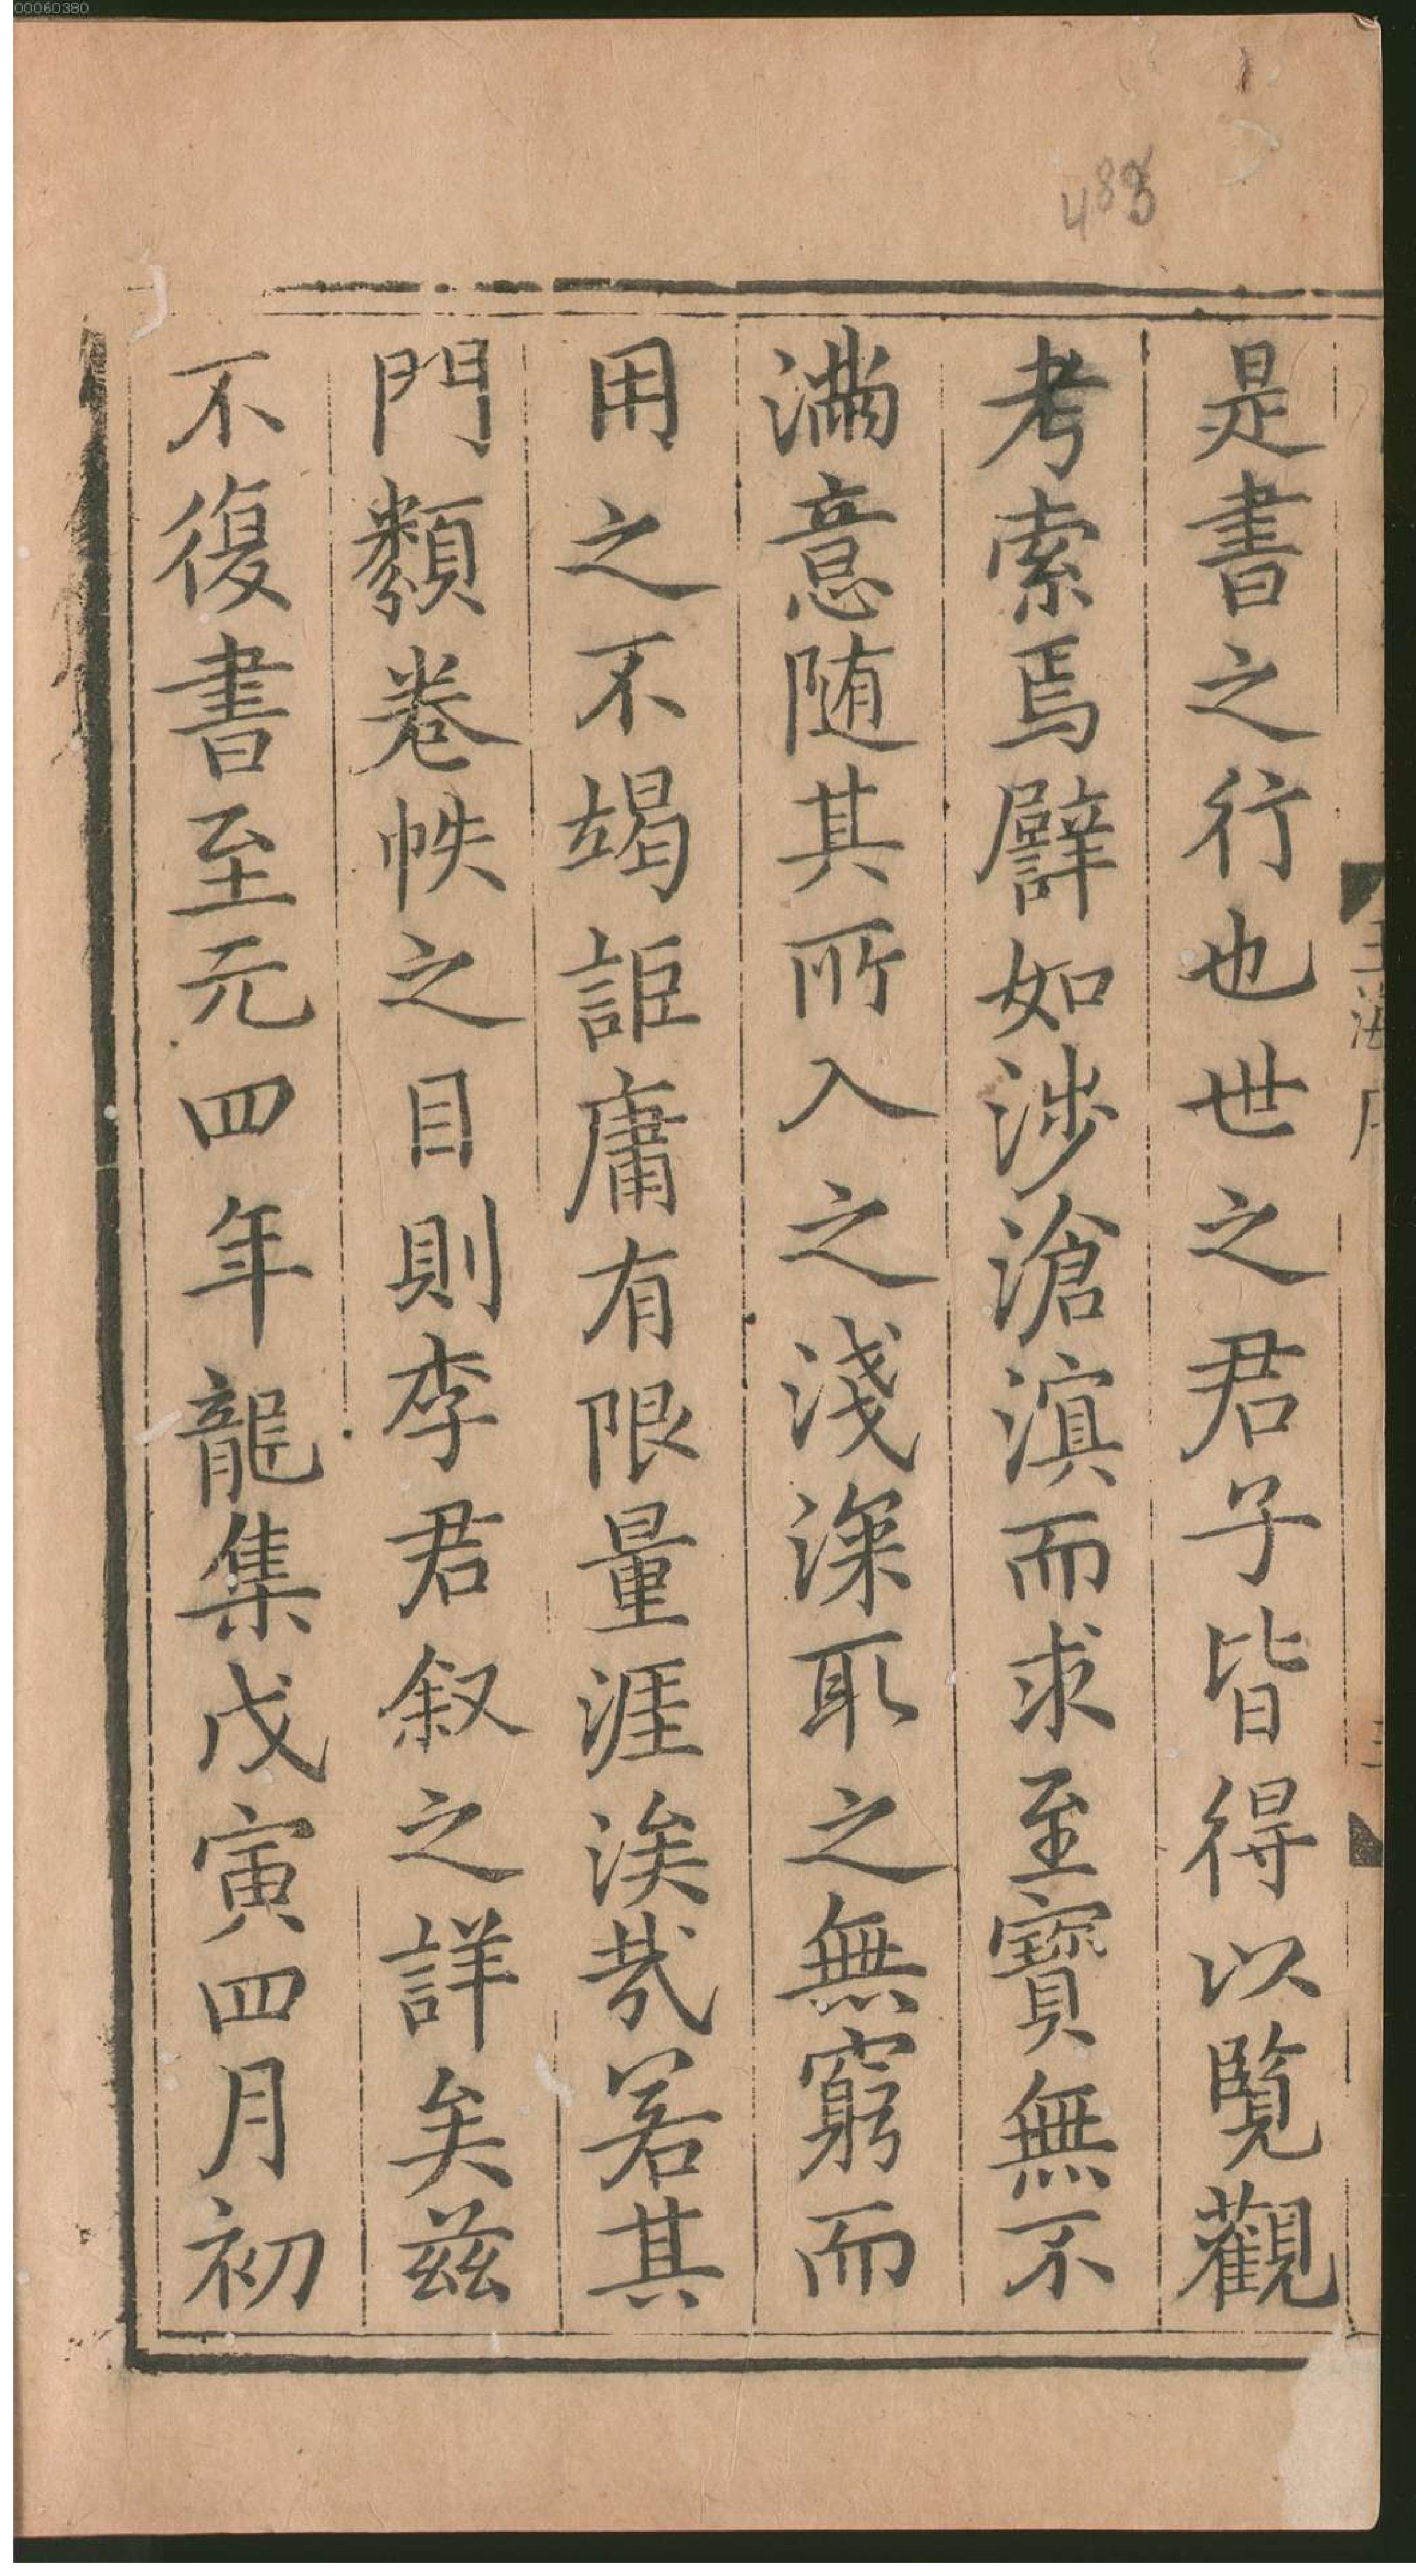 00060380
488
是書之行也世之君子皆得以覧觀
考索焉譬如涉滄溟而求至寶無不
滿意随其所入之淺深取之無窮而
用之不竭詎庸有限量涯涘㢤若其
門類卷帙之目則李君叙之詳矣兹
不復書至元四年龍集戊寅四月初